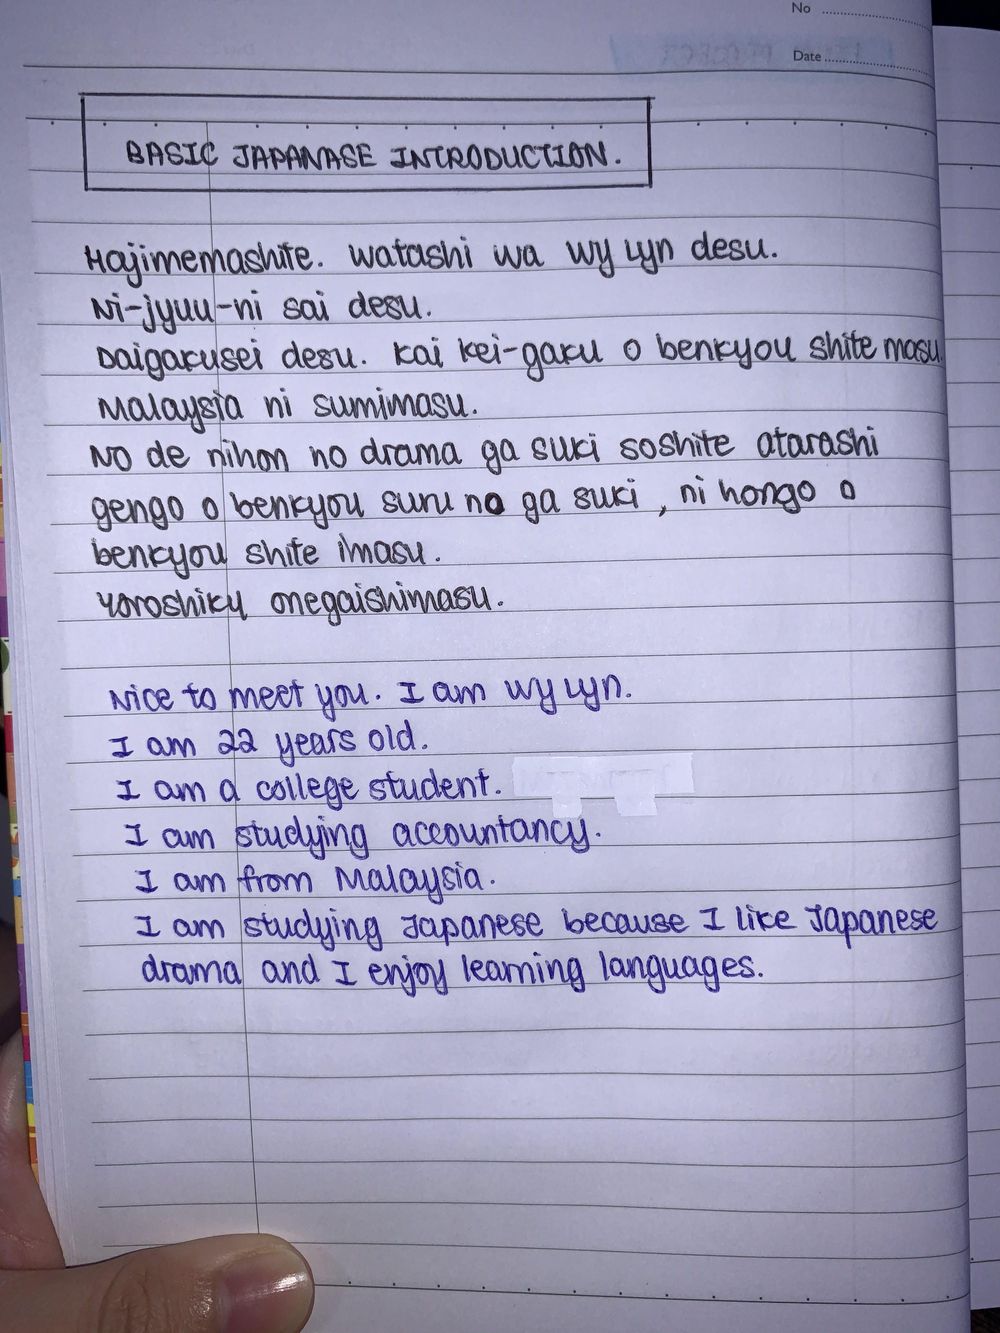 No
Date
BASIC JAPANASE INTRODUCTION.
Hajimemashite. Watashi wa Wy Lyn desu.
Ni-jyuu-ni sai desu.
Daigakusei desu. Kai kei-gaku o benkyou shite masu.
Malaysia ni sumimasu.
No de nihon no drama ga suki soshite atarashi
gengo o benkyou suru no ga suki, ni hongo o
benkyou shite imasu.
Yoroshiku onegaishimasu.
Nice to meet you. I am Wy Lyn.
I am 22 years old.
I am a college student.
I am studying accountancy.
I am from Malaysia.
I am studying Japanese because I like Japanese
drama and I enjoy learning languages.